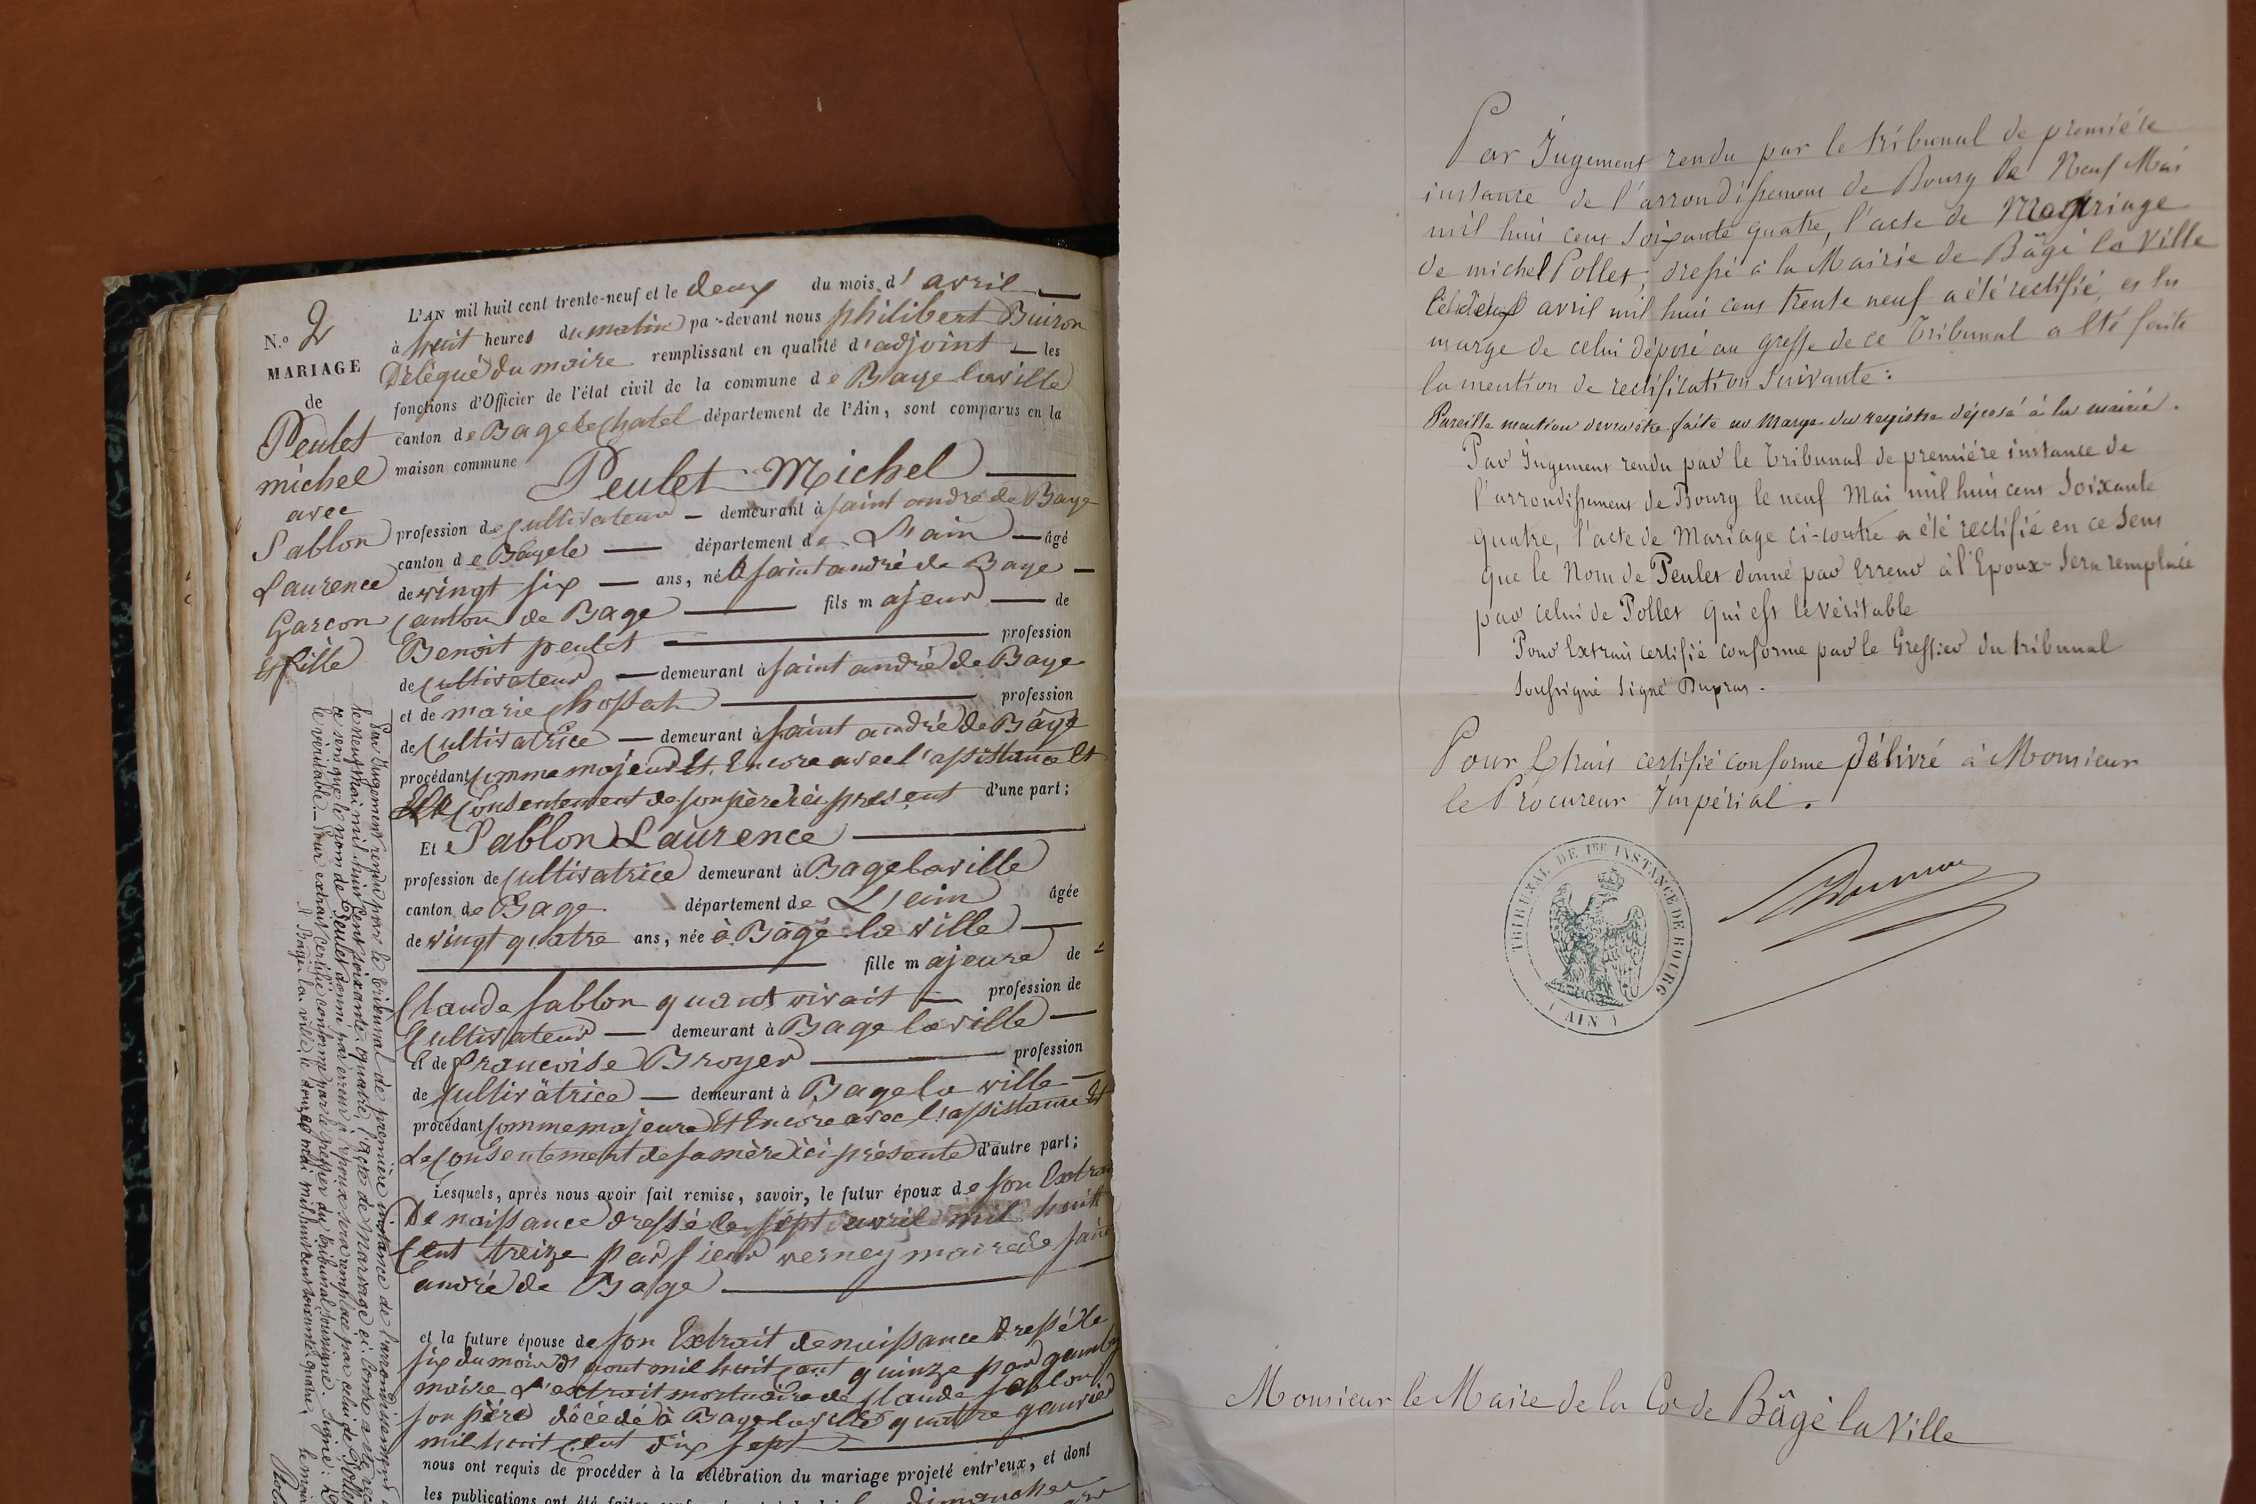 N.o 2
MARIAGE
de
Peulet
michel
avec
Sablon
Laurence
Garcon
et fille
L'AN mil huit cent trente-neuf et le deux du mois d'avril
à huit heures du matin par-devant nous philibert Buiron
Délégué du maire remplissant en qualité d'adjoint les
fonctions d'Officier de l'état civil de la commune de Bage laville
canton de Bage le Chatel département de l'Ain, sont comparus en la
maison commune Peulet Michel
profession de Cultivateur demeurant à saint andré de Bage
canton de Bagele département de L'ain âgé
de vingt six ans, né à saint andré de Bage
Canton de Bage fils majeur de
Benoit peulet profession
de Cultivateur demeurant à saint andré de Bage
et de marie Chossat profession
de Cultivatrice demeurant à saint andré de Bâge
procédant Comme majeur Et Encore avec l'assistance Et
Le Consentement de son père ici present d'une part;
Et Sablon Laurence
profession de Cultivatrice demeurant à Bage laville
canton de Bage département de L'ain âgée
de vingt quatre ans, née à Bâgé la ville
fille majeure de
Claude Sablon quant vivait profession de
Cultivateur demeurant à Bage laville
et de francoise Broyer profession
de Cultivâtrice demeurant à Bage la ville
procédant Comme majeure Et Encore avec l'assistance Et
Le Consentement de sa mère ici présente d'autre part;
Lesquels, après nous avoir fait remise, savoir, le futur époux de son Extrait
De naissance dressé le sept avril mil huit
Cent treize par sieur verney maire de saint
andré de Bage
et la future épouse de son Extrait de naissance Dressé le
six du mois d'aout mil huit cent quinze par
maire L'extrait mortuaire de Claude Sablon
son père décédé à Bage laville quatre janvier
mil huit cent dix sept
nous ont requis de procéder à la célébration du mariage projeté entr'eux, et dont
les publications ont été faites dimanche
Par Jugement rendu par le tribunal de première instance de l'arrondissement
le neuf mai mil huit cent soixante-quatre, l'acte de Mariage ci-contre a été
ce sens que le nom de Peulet donné par erreur à l'époux sera remplacé par celui de Pollet
le véritable. Pour extrait certifié conforme par le greffier du tribunal soussigné. Signé:
A Bâgé la ville, le douze mai mil huit cent soixante quatre.
Par Jugement rendu par le tribunal de première
instance de l'arrondissement de Bourg le Neuf Mai
mil huit cent soixante quatre, l'acte de Mariage
de michel Pollet, dressé à la Mairie de Bâgé la Ville
le deux avril mil huit cent trente neuf a été rectifié, et en
marge de celui déposé au greffe de ce Tribunal a été faite
la mention de rectification suivante:
Pareille mention devra être faite en Marge du registre déposé à la mairie.
Par Jugement rendu par le Tribunal de première instance de
l'arrondissement de Bourg le neuf Mai mil huit cent soixante
quatre, l'acte de Mariage ci-contre a été rectifié en ce sens
que le Nom de Peulet donné par Erreur à l'Epoux sera remplacé
par celui de Pollet qui est le véritable
Pour Extrait certifié conforme par le Greffier du tribunal
soussigné signé Dupras.
Pour Extrait certifié conforme délivré à Monsieur
le Procureur Impérial.
TRIBUNAL DE 1RE INSTANCE DE BOURG
AIN
Monsieur le Maire de la Cne de Bâgé la Ville